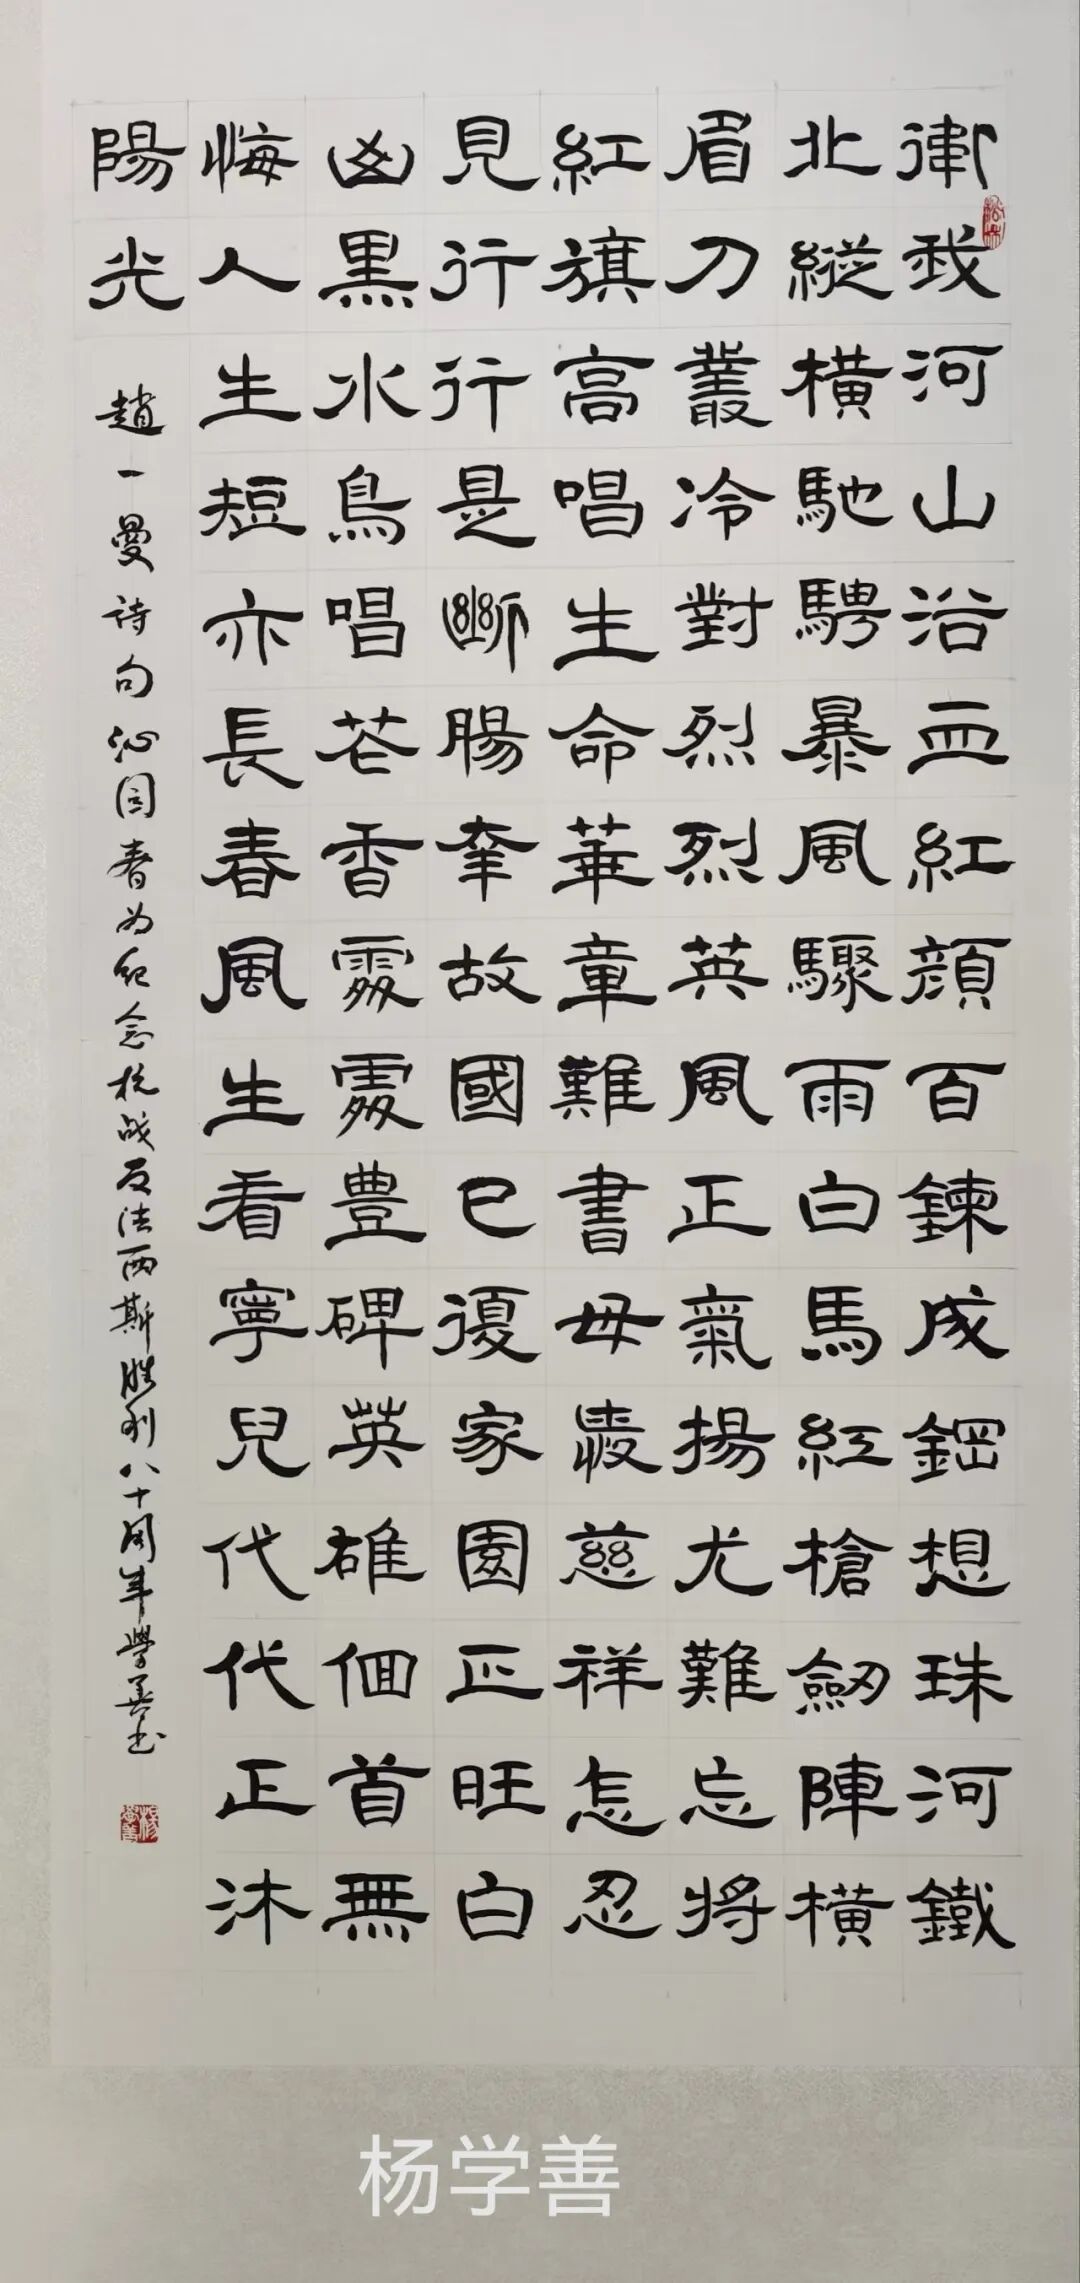 衛我河山浴血紅顔百鍊成鋼想珠河鐵
北縱橫馳騁暴風驟雨白馬紅槍劍陣橫
眉刀叢冷對烈烈英風正氣揚尤難忘將
紅旗高唱生命華章難書母愛慈祥怎忍
見行行是斷腸奎故國已復家園正旺白
山黑水鳥唱花香處處豐碑英雄個首無
悔人生短亦長春風生看寧兒代代正沐
陽光
趙一曼诗句沁园春为纪念抗战反法西斯胜利八十周年學善书
楊學善
杨学善